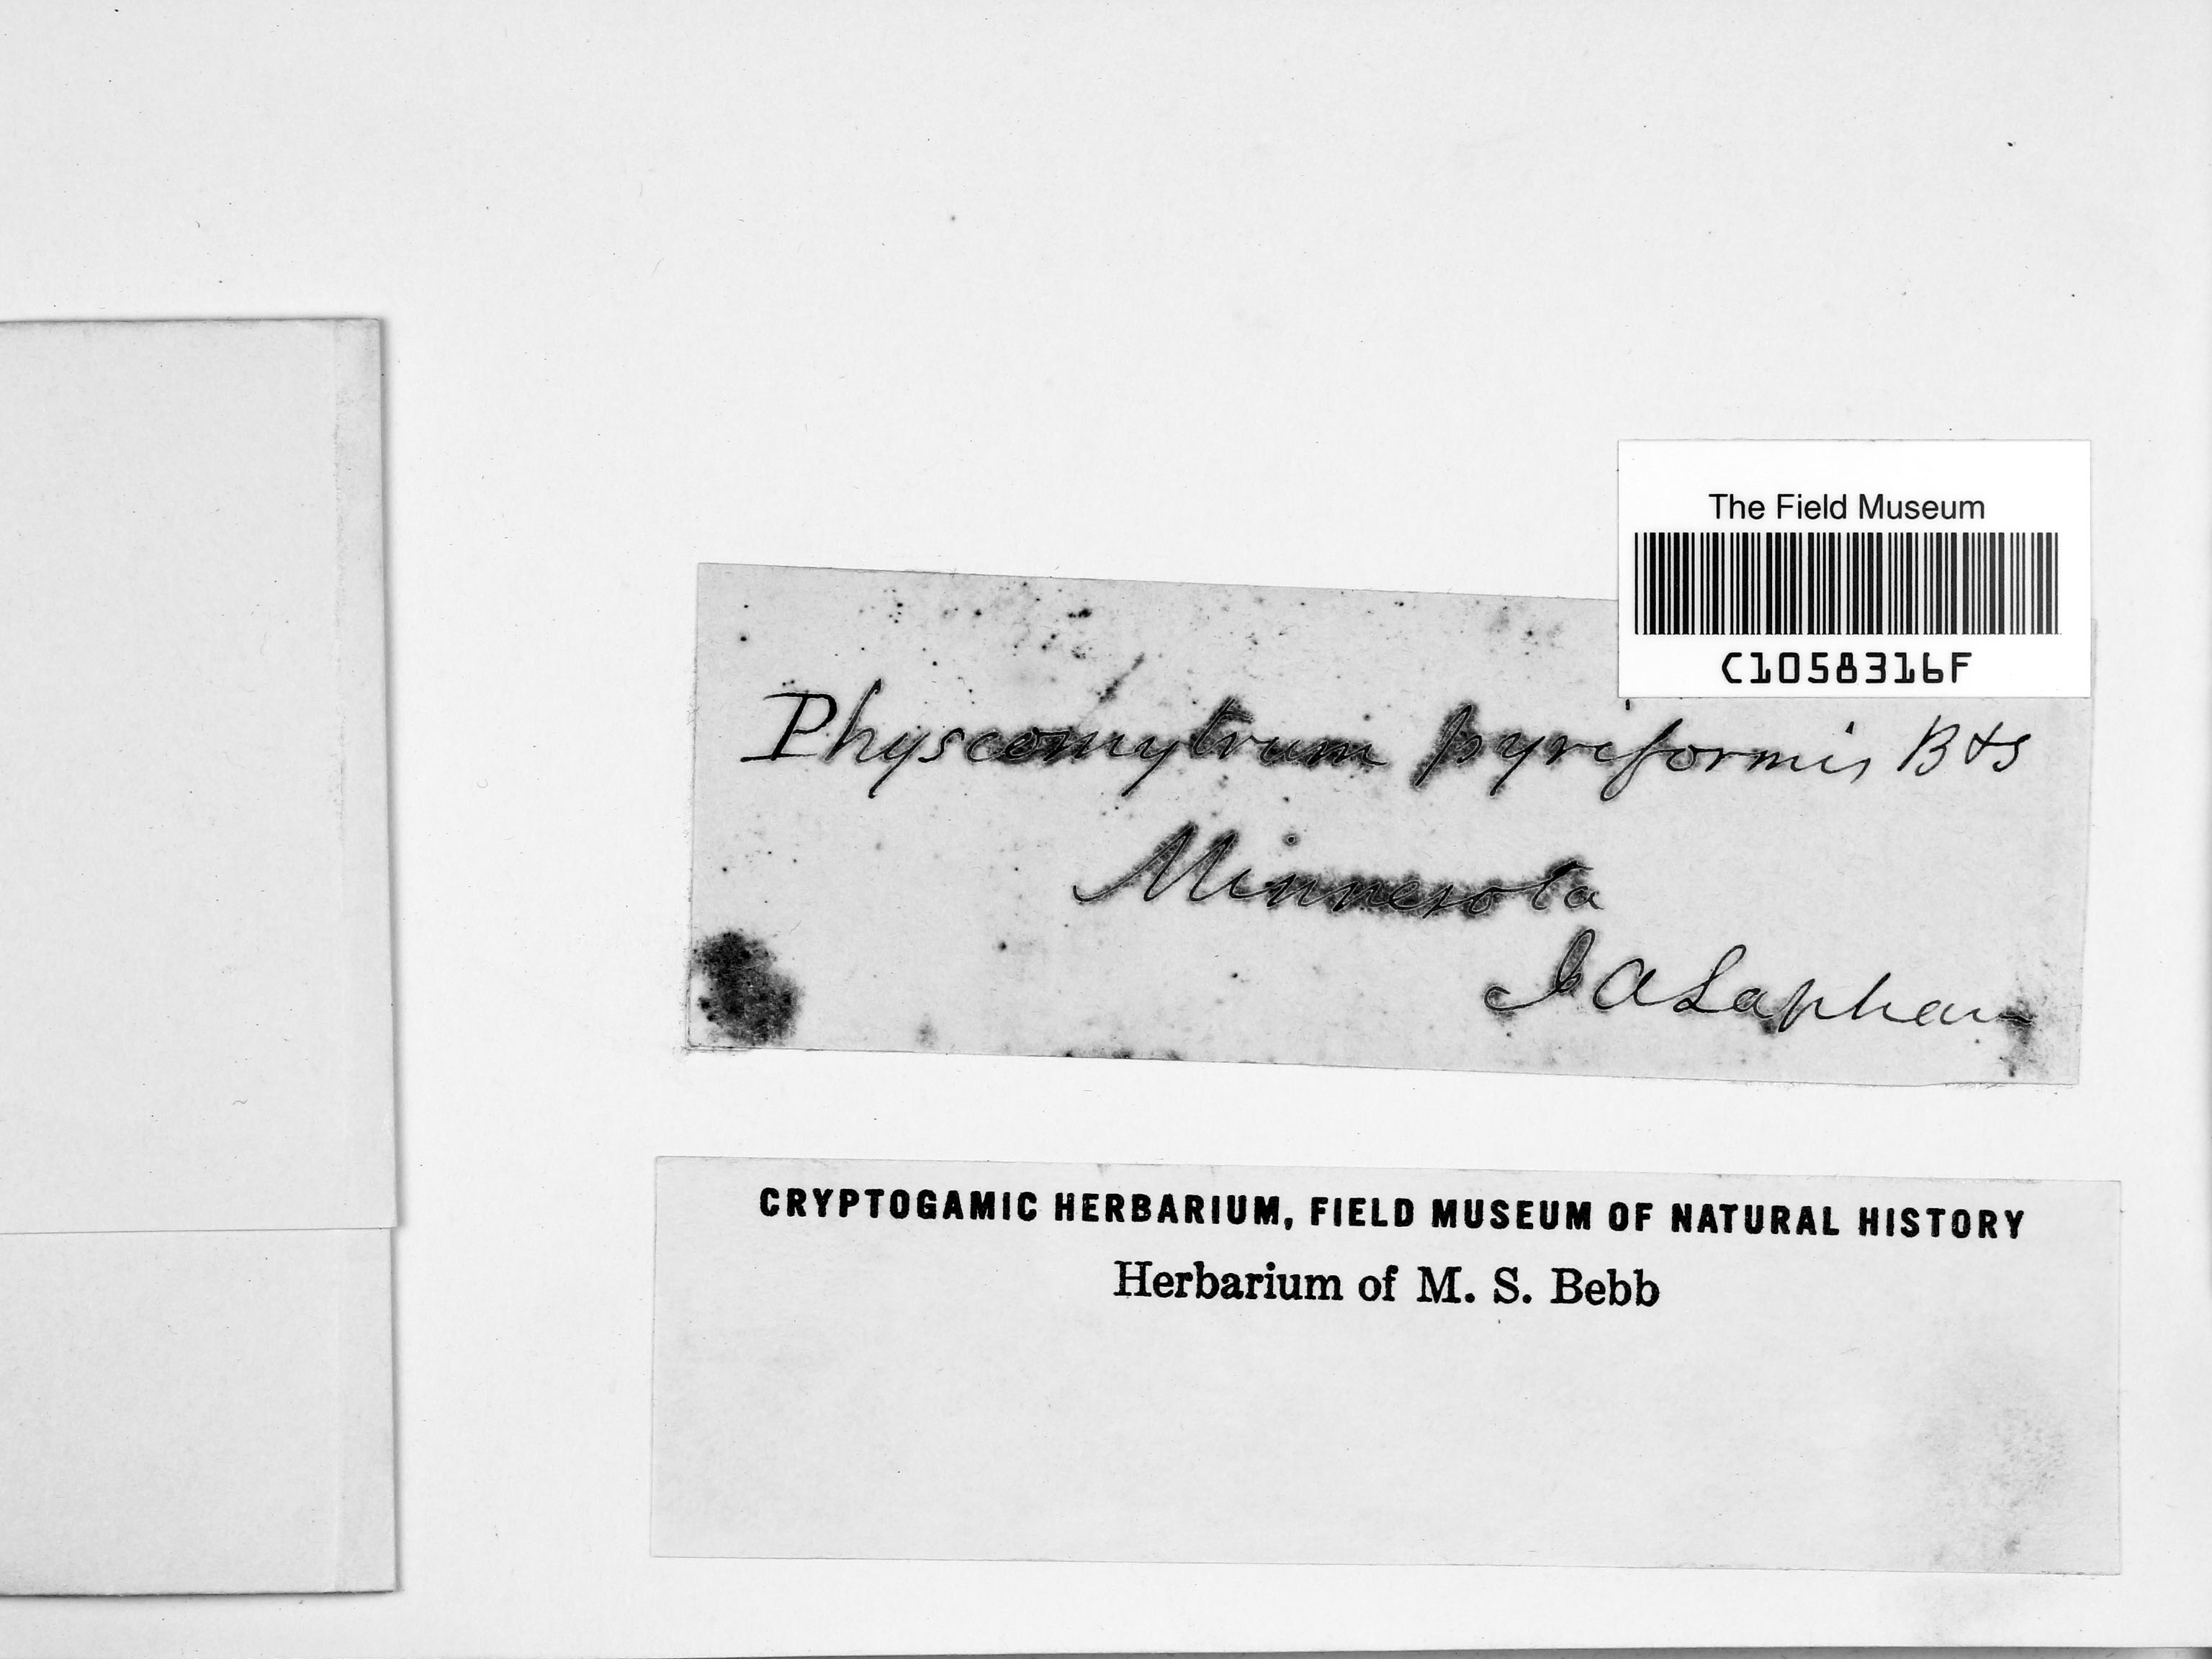 The Field Museum
C1058316F
Physcomytrum pyriformis B&S
Minnesota
I A Lapham
CRYPTOGAMIC HERBARIUM, FIELD MUSEUM OF NATURAL HISTORY
Herbarium of M. S. Bebb